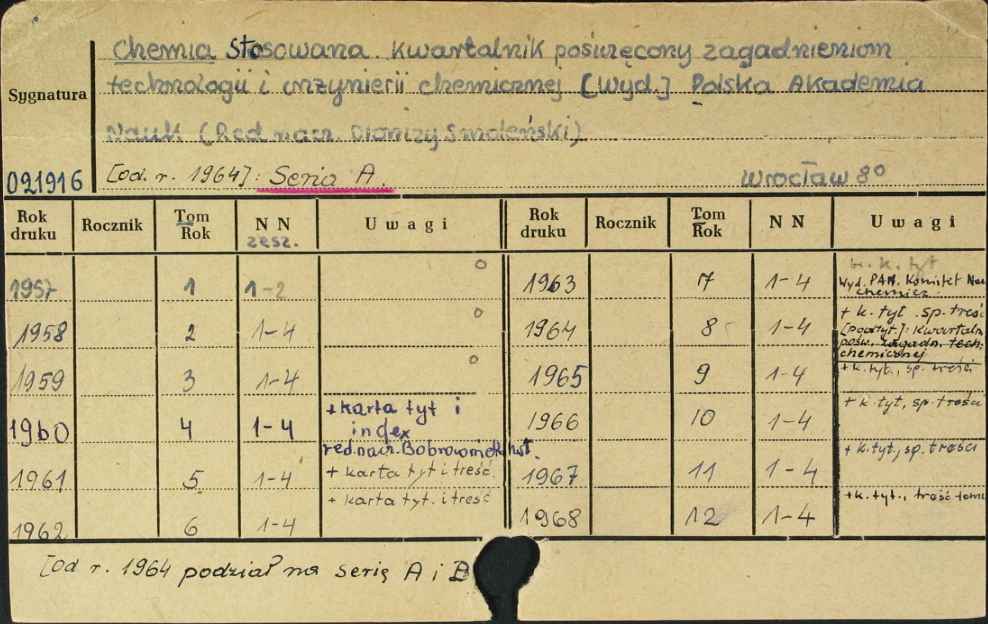 Chemia Stosowana. Kwartalnik poświęcony zagadnieniom
technologii i inżynierii chemicznej [Wyd.] Polska Akademia
Sygnatura
Nauk (Red. nacz. Dionizy Smoleński)
[od. r. 1964]: Seria A. Wrocław 8º
021916
Rok druku Rocznik Tom Rok NN zesz. Uwagi Rok druku Rocznik Tom Rok NN Uwagi
1957 1 1-2 o
1958 2 1-4 o
1959 3 1-4 o
1960 4 1-4 + karta tyt i index
red. nacz. Bobrownicki
1961 5 1-4 + karta tyt i treść.
1962 6 1-4 + karta tyt. i treść
1963 7 1-4 k. tyt
Wyd. PAN. Komitet
chemicz.
1964 8 1-4 + k. tyt. sp. treśc
[podtyt.]: kwartaln
pośw. zagadn. tech.
chemicznej
1965 9 1-4 + k. tyt., sp. treści
1966 10 1-4 + k. tyt, sp. treści
1967 11 1-4 + k. tyt., sp. treści
1968 12 1-4 + k. tyt., treść tomu
[Od r. 1964 podział na serię A i B